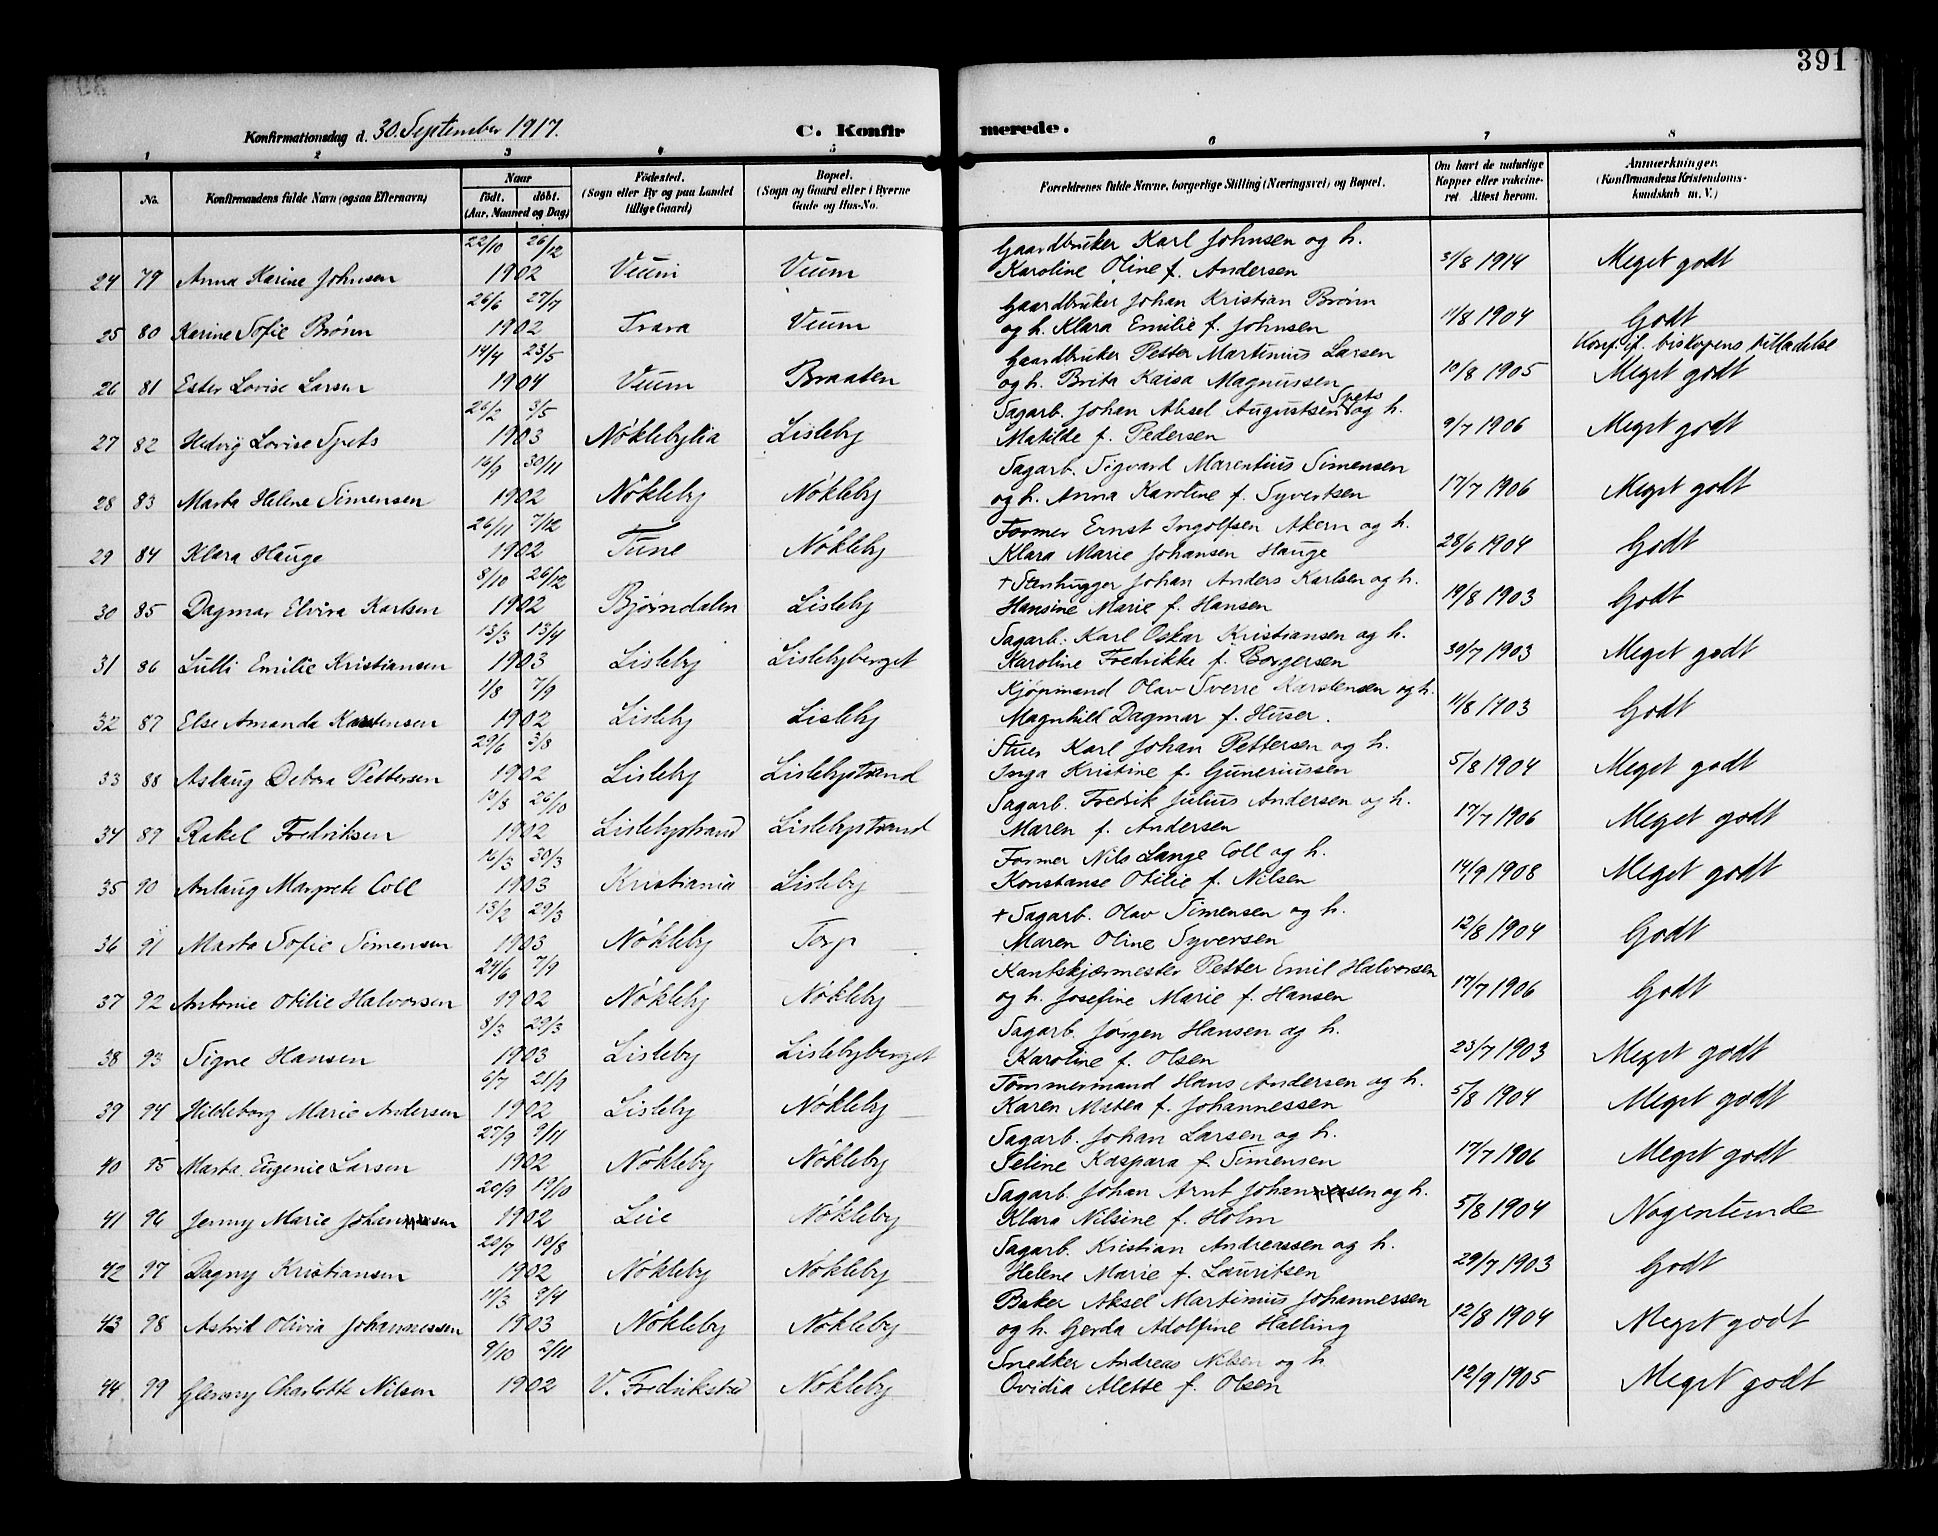 391
Konfirmationsdag d. 30. September 1917. C. Konfirmerede.
1 2 3 4 5 6 7 8
No. Konfirmandens fulde Navn (ogsaa Efternavn) Naar født. døbt. (Aar, Maaned og Dag) Fødested. (Sogn eller By og paa Landet tillige Gaard) Bopæl. (Sogn og Gaard eller i Byerne Gade og Hus-No. Forældrenes fulde Navne, borgerlige Stilling (Næringsvei) og Bopæl. Om havt de naturlige Kopper eller vakcineret Attest herom. Anmærkninger. (Konfirmandens Kristendomskundskab m. V.)
22/10 26/12 Gaardbruker Karl Johnsen og h.
24 79 Anna Karine Johnsen 1902 Veum Veum Karoline Oline f. Andersen 31/8 1914 Meget godt
26/6 27/7 Gaardbruker Johan Kristian Brønn
25 80 Karine Sofie Brønn 1902 Trara Veum og h. Klara Emilie f. Johnsen 11/8 1904 Godt
14/4 23/5 Gaardbruker Petter Martinius Larsen Konf. if. biskopens tilladelse
26 81 Ester Lovise Larsen 1904 Veum Braaten og h. Brita Kaisa Magnussen 10/8 1905 Meget godt
26/2 3/5 Sagarb. Johan Aksel Augustsen Spets og h.
27 82 Hedvig Lovise Spets 1903 Nøklebylia Lisleby Matilde f. Pedersen 9/7 1906 Meget godt
16/9 30/11 Sagarb. Sigvard Marentius Simensen
28 83 Marta Helene Simensen 1902 Nøkleby Nøkleby og h. Anna Karoline f. Syvertsen 17/7 1906 Meget godt
26/11 7/12 Former Ernst Ingolfsen Akern og h.
29 84 Klara Hauge 1902 Tune Nøkleby Klara Marie Johansen Hauge 28/6 1904 Godt
8/10 26/12 + Stenhugger Johan Anders Karlsen og h.
30 85 Dagmar Elvira Karlsen 1902 Bjørndalen Lisleby Hansine Marie f. Hansen 19/8 1903 Godt
13/3 13/4 Sagarb. Karl Oskar Kristiansen og h.
31 86 Lulli Emilie Kristiansen 1903 Lisleby Lislebyberget Karoline Fredrikke f. Borgersen 30/7 1903 Meget godt
1/8 7/9 Kjøpmand Olav Sverre Karstensen og h.
32 87 Else Amanda Karstensen 1902 Lisleby Lisleby Magnhild Dagmar f. Huser. 11/8 1903 Godt
29/6 3/8 Stuer Karl Johan Pettersen og h.
33 88 Aslaug Debora Pettersen 1902 Lisleby Lislebystrand Inga Kristine f. Guneriussen 5/8 1904 Meget godt
13/8 26/10 Sagarb. Fredrik Julius Andersen og h.
34 89 Rakel Fredriksen 1902 Lislebystrand Lislebystrand Maren f. Andersen 17/7 1906 Meget godt
16/3 30/3 Former Nils Lange Coll og h.
35 90 Anlaug Margrete Coll 1903 Kristiania Lisleby Konstanse Otilie f. Nilsen 14/9 1908 Meget godt
13/2 29/3 + Sagarb. Olav Simensen og h.
36 91 Marta Sofie Simensen 1903 Nøkleby Torp Maren Oline Syversen 12/8 1904 Godt
24/6 7/9 Kantskjærmester Petter Emil Halvorsen
37 92 Antonie Otilie Halvorsen 1902 Nøkleby Nøkleby og h. Josefine Marie f. Hansen 17/7 1906 Godt
8/3 29/3 Sagarb. Jørgen Hansen og h.
38 93 Signe Hansen 1903 Lisleby Lislebyberget Karoline f. Olsen 23/7 1903 Meget godt
6/7 21/9 Tømmermand Hans Andersen og h.
39 94 Hildeborg Marie Andersen 1902 Lisleby Nøkleby Karen Matea f. Johannessen 5/8 1904 Meget godt
27/9 9/11 Sagarb. Johan Larsen og h.
40 95 Marta Eugenie Larsen 1902 Nøkleby Nøkleby Seline Kaspara f. Simensen 17/7 1906 Meget godt
20/9 19/10 Sagarb. Johan Arnt Johansen og h.
41 96 Jenny Marie Johansen 1902 Leie Nøkleby Klara Nilsine f. Holm 5/8 1904 Nogenlunde
20/7 10/8 Sagarb. Kristian Andreassen og h.
42 97 Dagny Kristiansen 1902 Nøkleby Nøkleby Helene Marie f. Lauritsen 29/7 1903 Godt
17/3 9/4 Baker Aksel Martinius Johannessen
43 98 Astrid Olivia Johannessen 1903 Nøkleby Nøkleby og h. Gerda Adolfine Halling 12/8 1904 Meget godt
9/10 2/11 Snedker Andreas Nilsen og h
44 99 Charlotte Nilsen 1902 V. Fredrikstad Nøkleby Ovidia Alette f. Olsen 12/9 1905 Meget godt